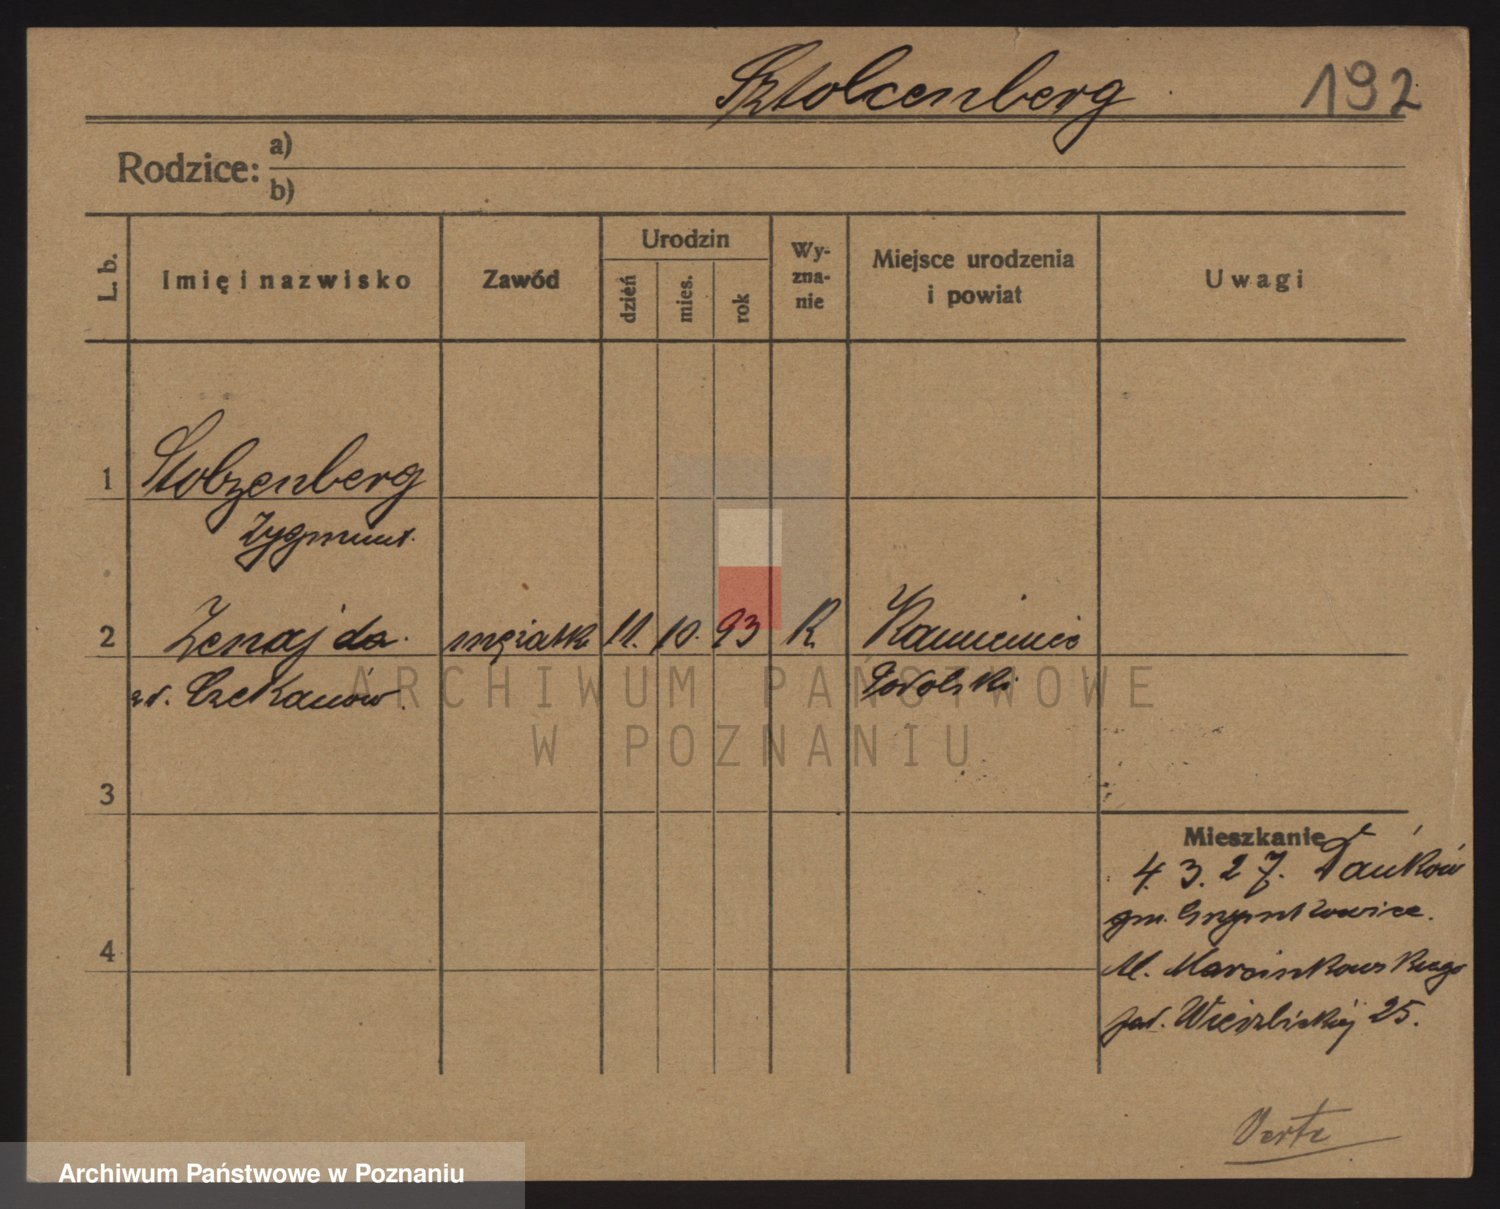 Sztolcenberg 192
Rodzice: a)
b)
L. b. Imię i nazwisko Zawód Urodzin dzień mies. rok Wy-zna-nie Miejsce urodzenia i powiat Uwagi
1 Stolzenberg
Zygmunt.
2 Zenajda mężatka 11. 10. 93 R. Kamieniec
zd. Czekanów. Podolski
ARCHIWUM PAŃSTWOWE
W POZNANIU
3
Mieszkanie
4. 3. 27. Dańków
gm.
4
M. Marcinkowskiego
25.
Verte
Archiwum Państwowe w Poznaniu